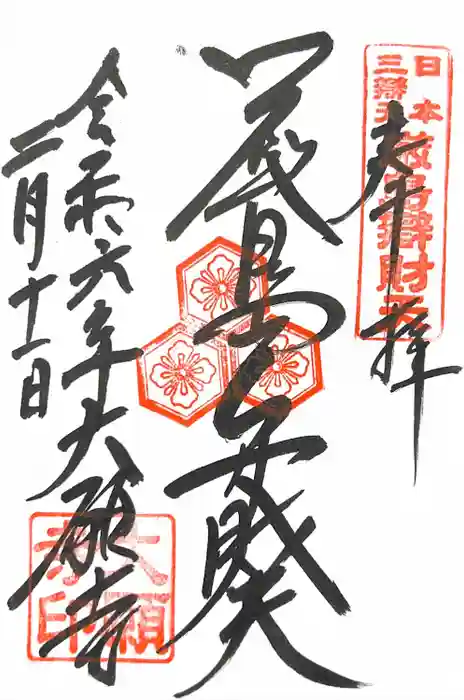 日本
三辯天
厳島辯財天
奉拝
厳島弁財天
令和六年大願寺
二月十一日
大願
寺印